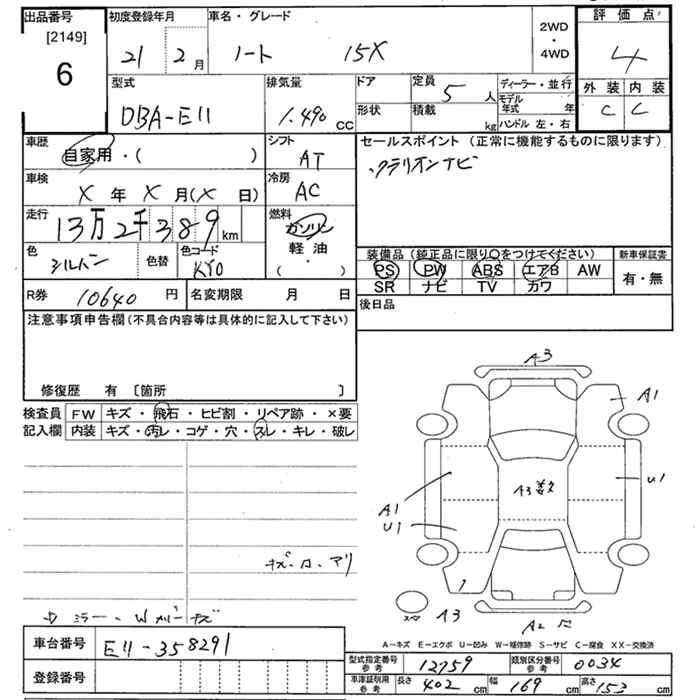 出品番号 初度登録年月 車名・グレード 評価点
[2149] 6
21 2月 ノート 15X 2WD・4WD 4
型式 排気量 ドア 定員 5人 ディーラー・並行 外装 内装
DBA-E11 1.490 CC 形状 積載 kg モデル年式 年 C C
ハンドル 左・右
車歴 自家用・( ) シフト AT セールスポイント(正常に機能するものに限ります)
・クラリオンナビ
車検 X年 X月(X日) 冷房 AC
走行 13万2千389km 燃料 ガソリン 軽油 ( ・ )
色 シルバー 色替 色コード KY0
装備品(純正品に限り○をつけてください) 新車保証書
PS PW ABS エアB AW 有・無
SR ナビ TV カワ
R券 10640円 名変期限 月 日 後日品
注意事項申告欄(不具合内容等は具体的に記入して下さい)
修復歴 有 〔箇所 〕
検査員 FW キズ・飛石・ヒビ割・リペア跡・×要
記入欄 内装 キズ・汚レ・コゲ・穴・スレ・キレ・破レ
A3
A1
A1
U1
U1
キズ・凹・アリ
スペア A3
A2 凹
A-キズ E-エクボ U-凹み W-補修跡 S-サビ C-腐食 XX-交換済
車台番号 E11-358291
登録番号
型式指定番号 参考 12759 類別区分番号 参考 0034
車庫証明用 参考 長さ 402cm 幅 169cm 高さ 153cm